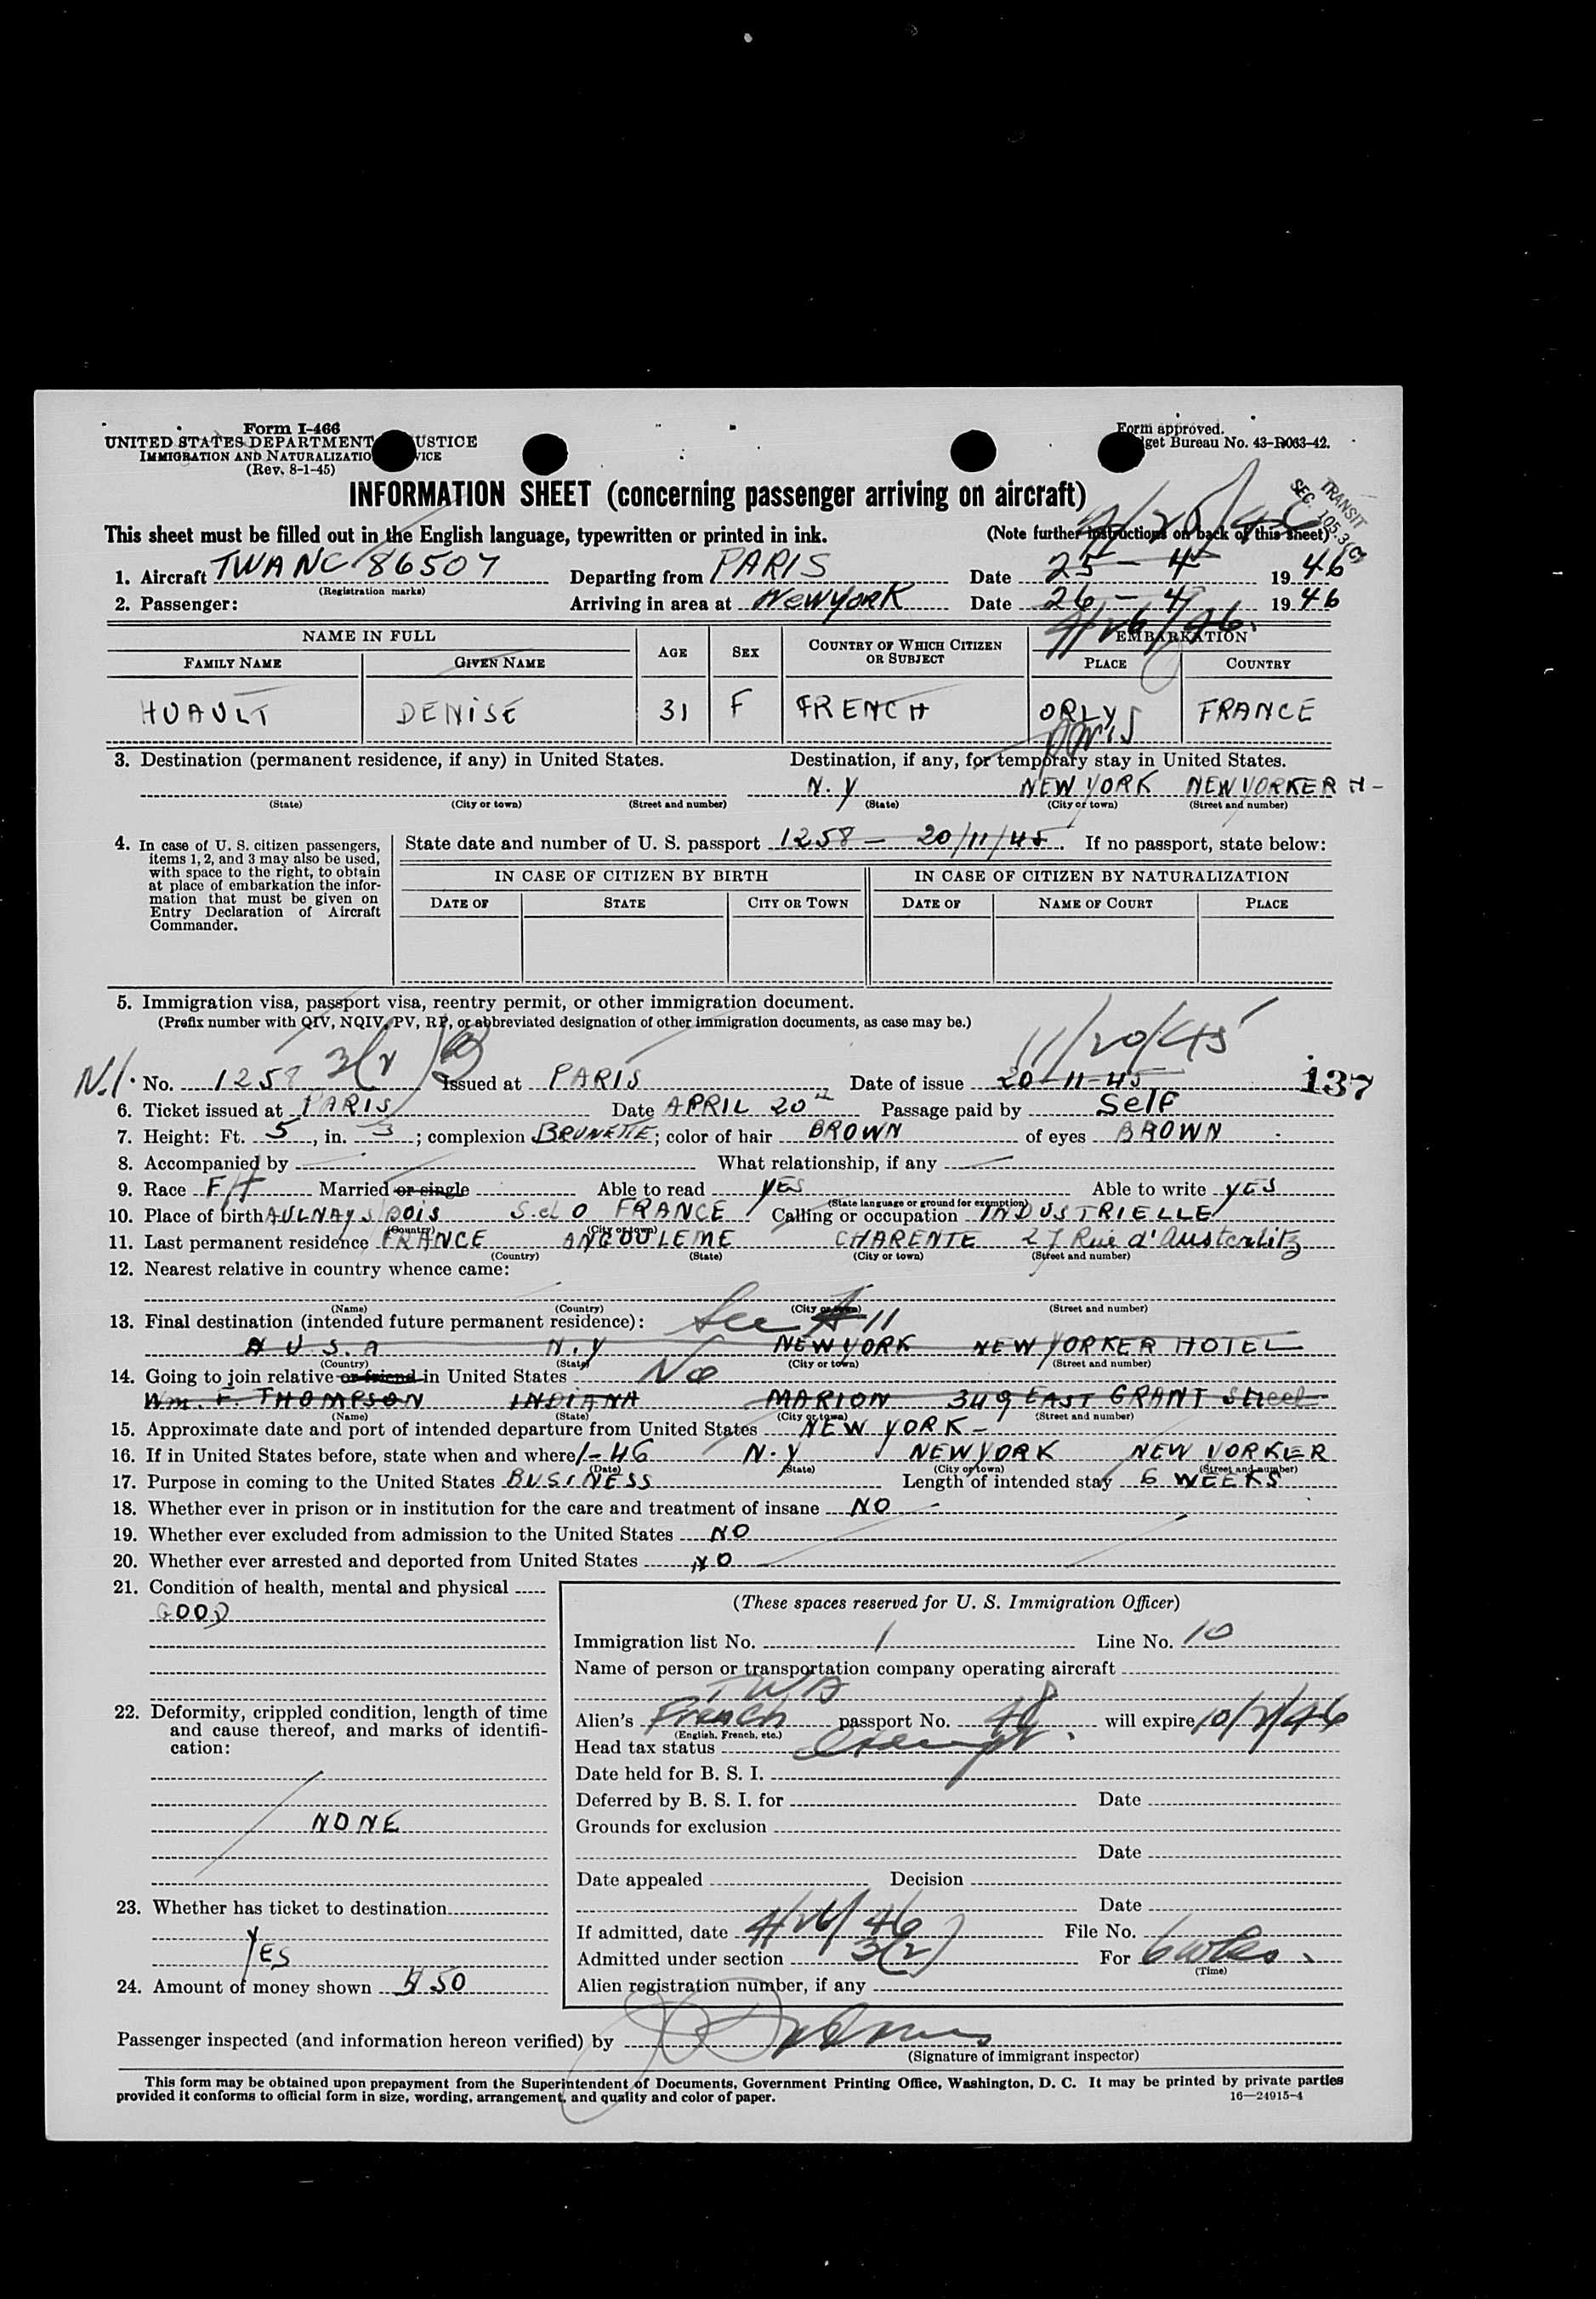 Form I-466
UNITED STATES DEPARTMENT USTICE
IMMIGRATION AND NATURALIZATIO VICE
(Rev. 8-1-45)
Form approved.
get Bureau No. 43-R063-42.
INFORMATION SHEET (concerning passenger arriving on aircraft)
TRANSIT
SEC. 105.3(c)
This sheet must be filled out in the English language, typewritten or printed in ink.
(Note further instructions on back of this sheet)
1. Aircraft TWA NC 86507 Departing from PARIS Date 25 - 4 1946
(Registration marks)
2. Passenger: Arriving in area at NEW YORK Date 26 - 4 1946
4/26/46.
NAME IN FULL AGE SEX COUNTRY OF WHICH CITIZEN OR SUBJECT EMBARKATION
FAMILY NAME GIVEN NAME PLACE COUNTRY
HUAULT DENISE 31 F FRENCH ORLY FRANCE
Paris
3. Destination (permanent residence, if any) in United States. Destination, if any, for temporary stay in United States.
N.Y NEW YORK NEW YORKER H-
(State) (City or town) (Street and number) (State) (City or town) (Street and number)
4. In case of U. S. citizen passengers, items 1, 2, and 3 may also be used, with space to the right, to obtain at place of embarkation the information that must be given on Entry Declaration of Aircraft Commander.
State date and number of U. S. passport 1258 - 20/11/45. If no passport, state below:
IN CASE OF CITIZEN BY BIRTH IN CASE OF CITIZEN BY NATURALIZATION
DATE OF STATE CITY OR TOWN DATE OF NAME OF COURT PLACE
5. Immigration visa, passport visa, reentry permit, or other immigration document.
(Prefix number with QIV, NQIV, PV, RP, or abbreviated designation of other immigration documents, as case may be.)
11/20/45
N.I. No. 1258 3(2) Issued at PARIS Date of issue 20-11-45 137
6. Ticket issued at PARIS Date APRIL 20th Passage paid by Self
7. Height: Ft. 5, in. 3; complexion BRUNETTE; color of hair BROWN of eyes BROWN
8. Accompanied by What relationship, if any
9. Race Married or single Able to read YES Able to write YES
(State language or ground for exemption)
10. Place of birth AULNAY S/BOIS S. et O FRANCE Calling or occupation INDUSTRIELLE
(Country) (City or town)
11. Last permanent residence FRANCE ANGOULEME CHARENTE 27 Rue d'Austerlitz
(Country) (State) (City or town) (Street and number)
12. Nearest relative in country whence came:
(Name) (Country) (City or town) (Street and number)
13. Final destination (intended future permanent residence): See # 11
U S. A N.Y NEW YORK NEW YORKER HOTEL
(Country) (State) (City or town) (Street and number)
14. Going to join relative or friend in United States No
Wm. F. THOMPSON INDIANA MARION 349 EAST GRANT Street
(Name) (State) (City or town) (Street and number)
15. Approximate date and port of intended departure from United States NEW YORK -
16. If in United States before, state when and where 1-46 N.Y NEW YORK NEW YORKER
(Date) (State) (City or town) (Street and number)
17. Purpose in coming to the United States BUSINESS Length of intended stay 6 WEEKS
18. Whether ever in prison or in institution for the care and treatment of insane NO
19. Whether ever excluded from admission to the United States NO
20. Whether ever arrested and deported from United States NO
21. Condition of health, mental and physical
GOOD
22. Deformity, crippled condition, length of time and cause thereof, and marks of identification:
NONE
23. Whether has ticket to destination
YES
24. Amount of money shown $ 50
(These spaces reserved for U. S. Immigration Officer)
Immigration list No. 1 Line No. 10
Name of person or transportation company operating aircraft
TWA
Alien's French passport No. 48 will expire 10/2/46
(English, French, etc.)
Head tax status Exempt.
Date held for B. S. I.
Deferred by B. S. I. for Date
Grounds for exclusion
Date
Date appealed Decision
Date
If admitted, date 4/26/46 File No.
Admitted under section 3(2) For 6 wks.
(Time)
Alien registration number, if any
Passenger inspected (and information hereon verified) by
(Signature of immigrant inspector)
This form may be obtained upon prepayment from the Superintendent of Documents, Government Printing Office, Washington, D. C. It may be printed by private parties
provided it conforms to official form in size, wording, arrangement, and quality and color of paper.
16—24915-4